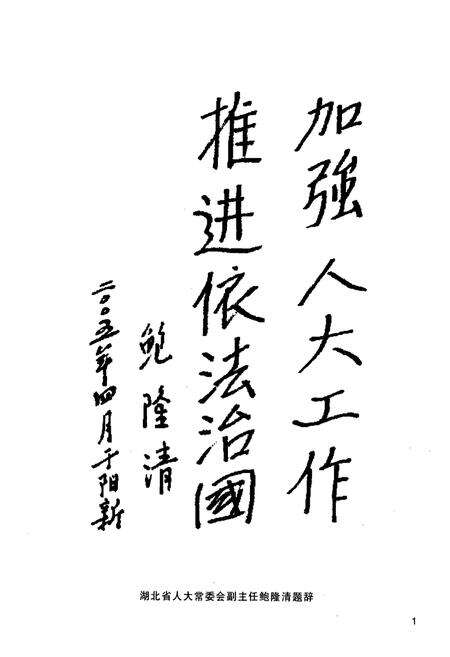 加強人大工作
推进依法治國
鲍隆清
二〇〇五年四月于阳新
湖北省人大常委会副主任鲍隆清题辞
1